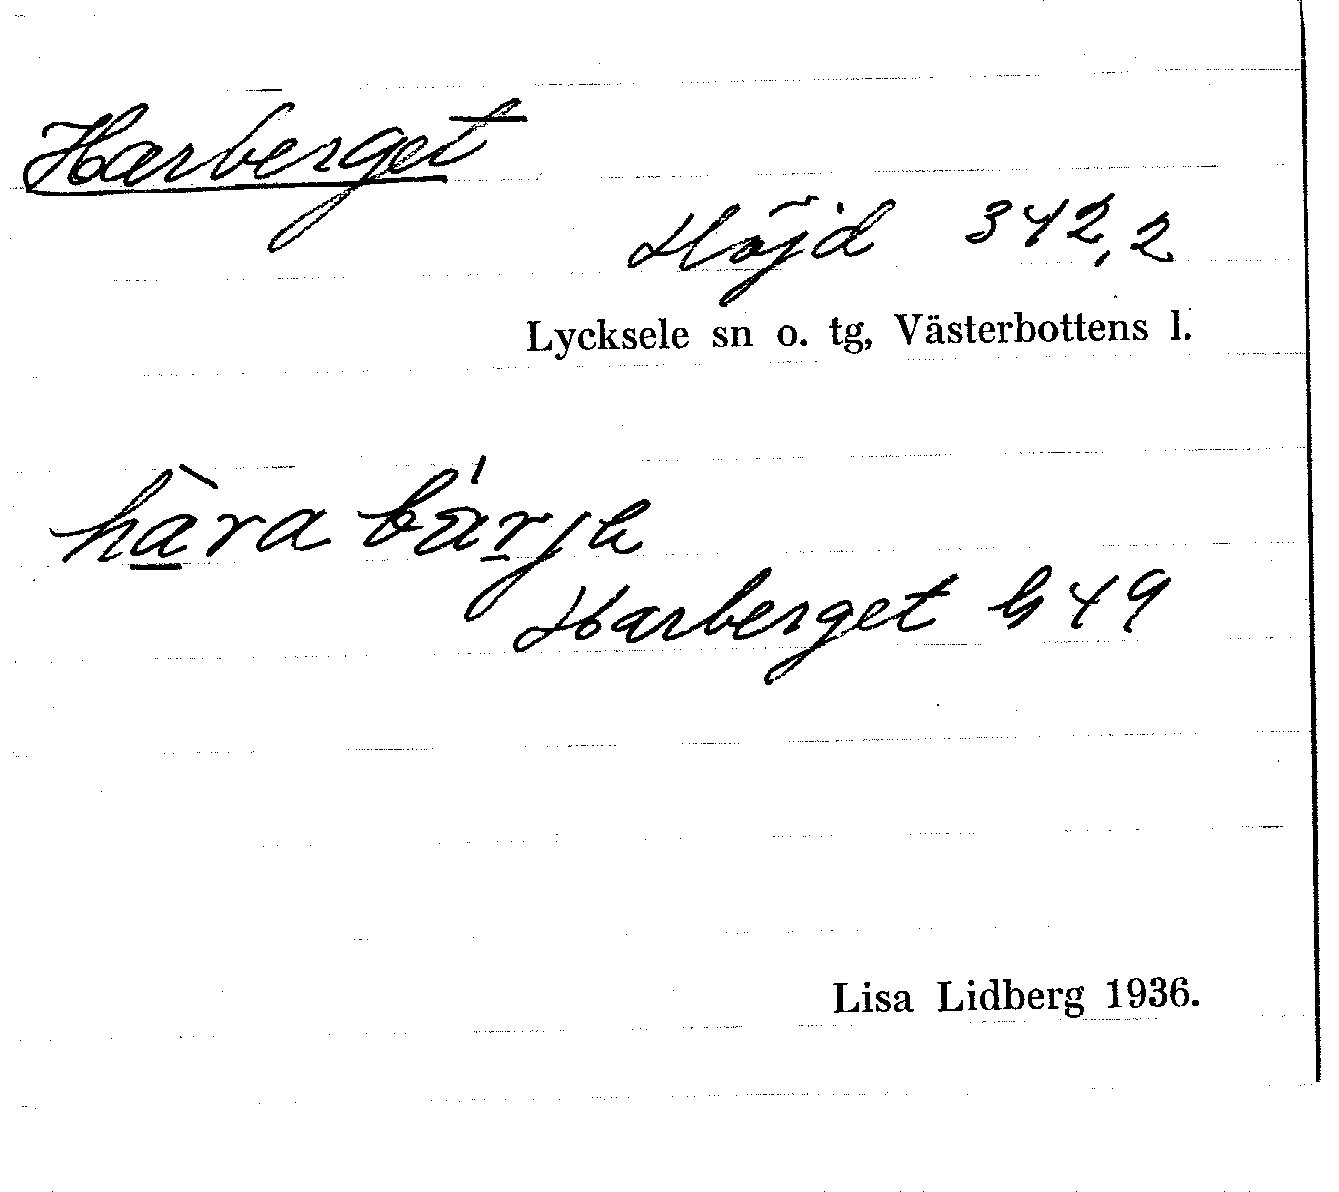 Harberget
Höjd 342,2
Lycksele sn o. tg, Västerbottens l.
hàra bárjh
Harberget G 49
Lisa Lidberg 1936.